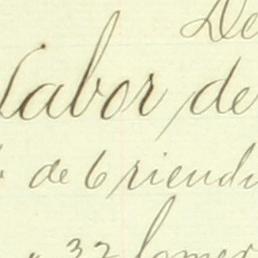 De
Labor de
de 6 riendu
" 32 lomer